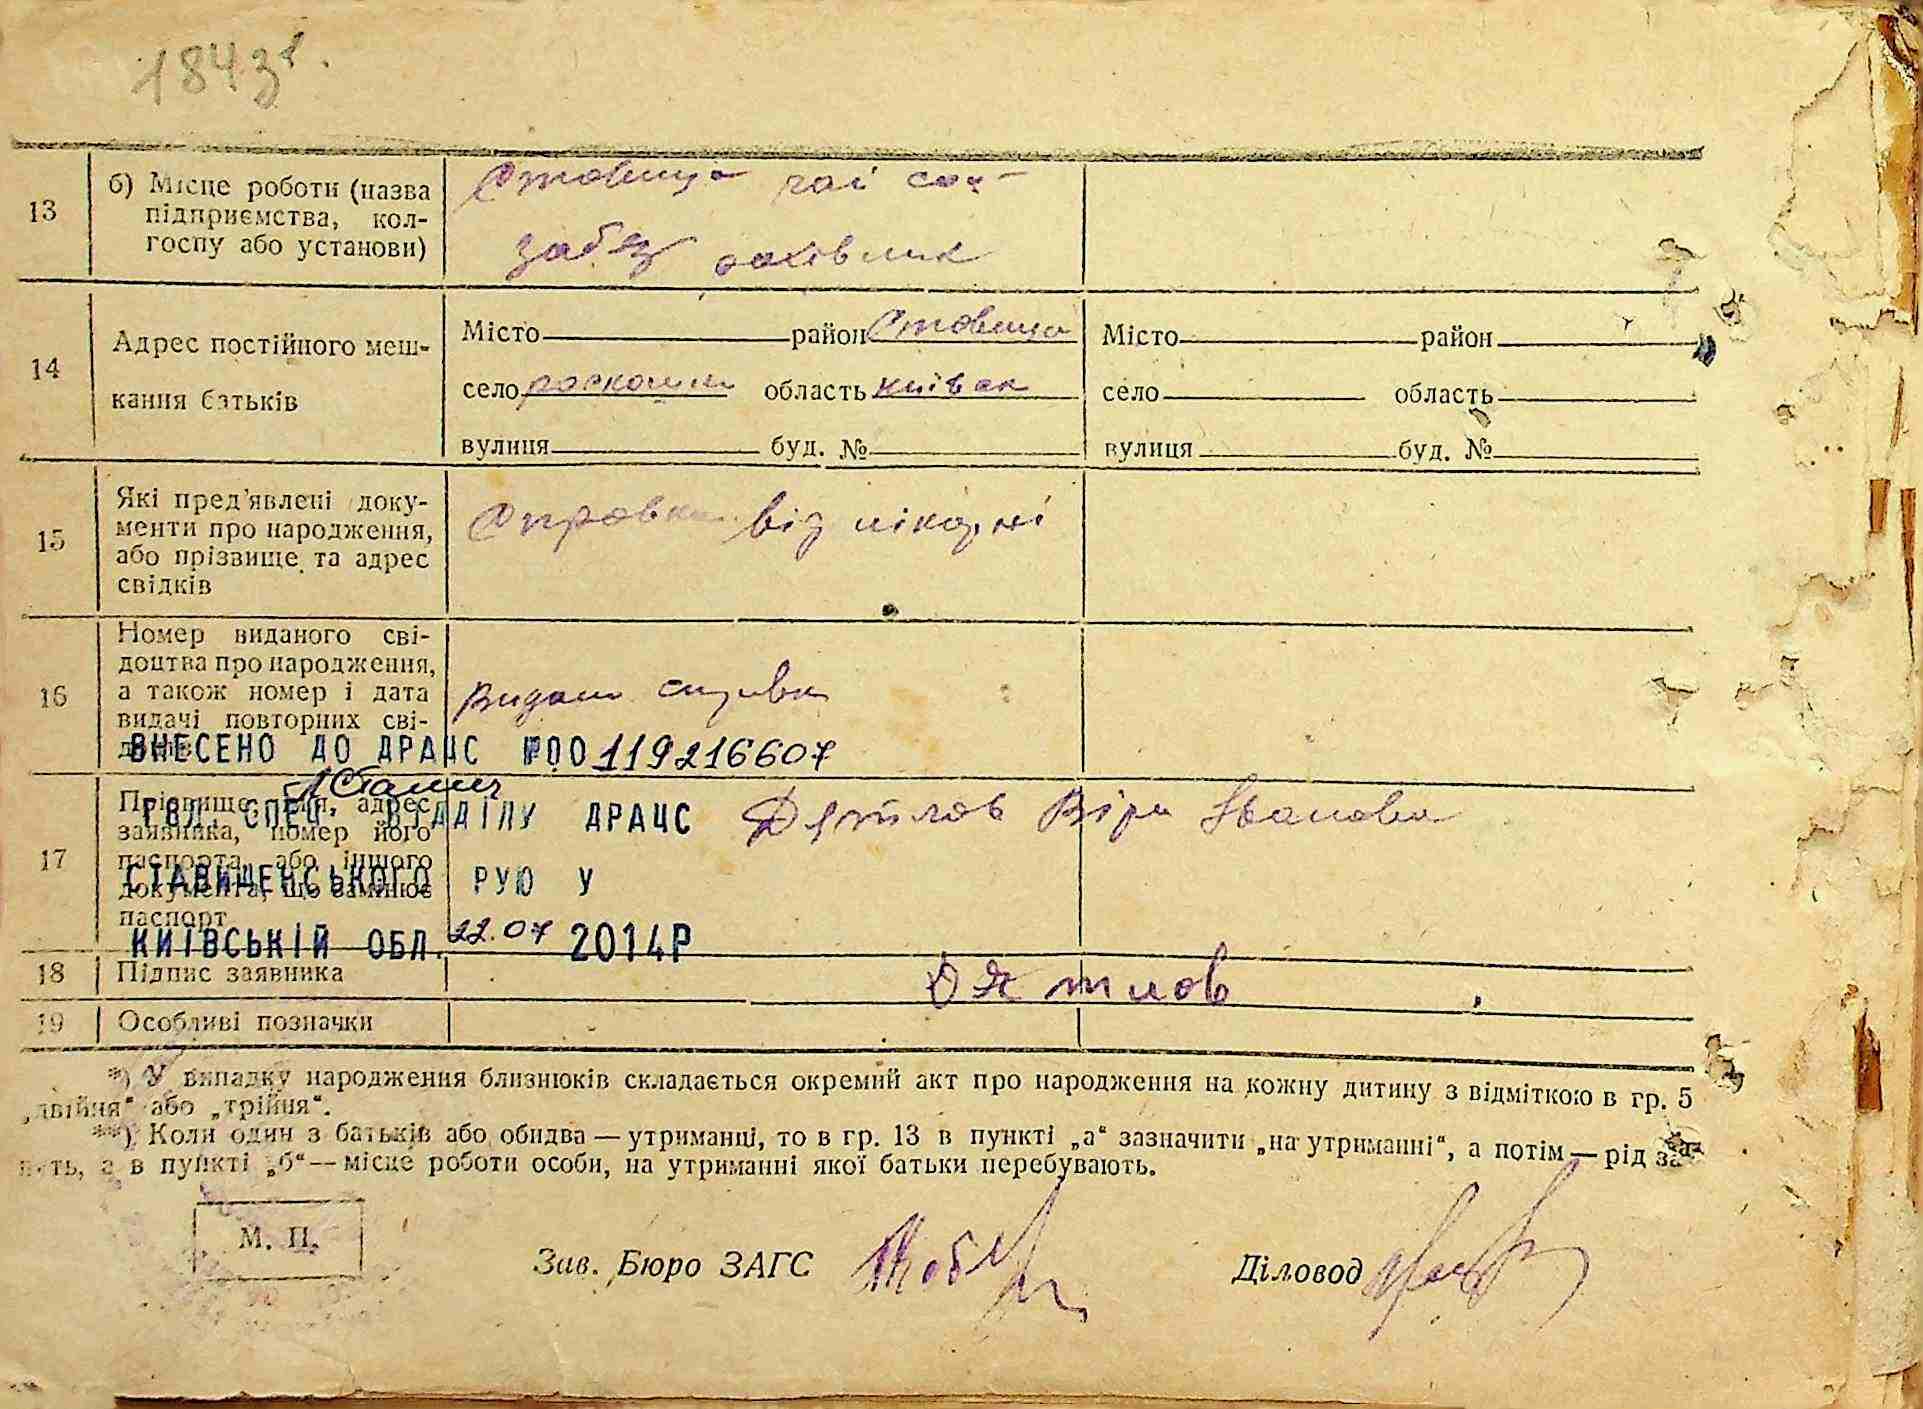 1843
13 б) Місце роботи (назва підприємства, колгоспу або установи)
Ставище рай соц
забез
14 Адрес постійного мешкання батьків
Місто район Ставище Місто район
село роскошна область київск село область
вулиця буд. № вулиця буд. №
15 Які пред'явлені документи про народження, або прізвище та адрес свідків
Справка від лікарні
16 Номер виданого свідоцтва про народження, а також номер і дата видачі повторних сві-
Видана справка
ВНЕСЕНО ДО ДРАЦС №00119216607
17 Прізвище, ім'я, адрес заявника, номер його паспорта, або іншого документа, що замінює паспорт
ГОЛ. СПЕЦ. ВІДДІЛУ ДРАЦС
Дятлов Віра Іванова
СТАВИЩЕНСЬКОГО РУЮ У
КИЇВСЬКІЙ ОБЛ. 22.07 2014Р
18 Підпис заявника Дятлов
19 Особливі позначки
*) У випадку народження близнюків складається окремий акт про народження на кожну дитину з відміткою в гр. 5
„двійня" або „трійня".
**) Коли один з батьків або обидва — утриманці, то в гр. 13 в пункті „а" зазначити „на утриманні", а потім — рід за-
нять, а в пункті „б" — місце роботи особи, на утриманні якої батьки перебувають.
М. П.
Зав. Бюро ЗАГС Діловод